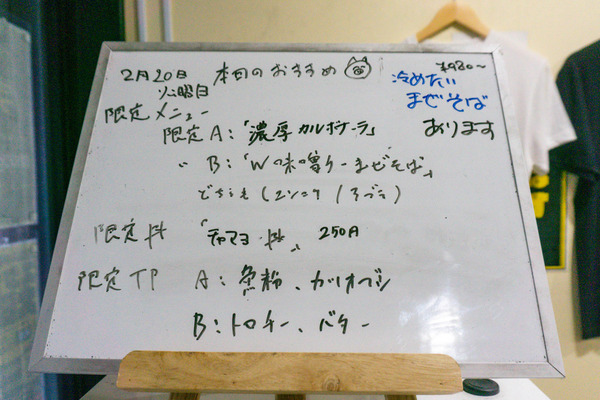 2月20日
火曜日
本日のおすすめ
¥980～
冷めたい
まぜそば
あります
限定メニュー
限定A:「濃厚カルボナーラ」
〃 B:「Wの味噌ラーまぜそば」
どちらも(ニンニク/アブラ)
限定丼 「チャマヨ丼」 250円
限定TP A:魚粉、カツオブシ
B:トロチー、バター